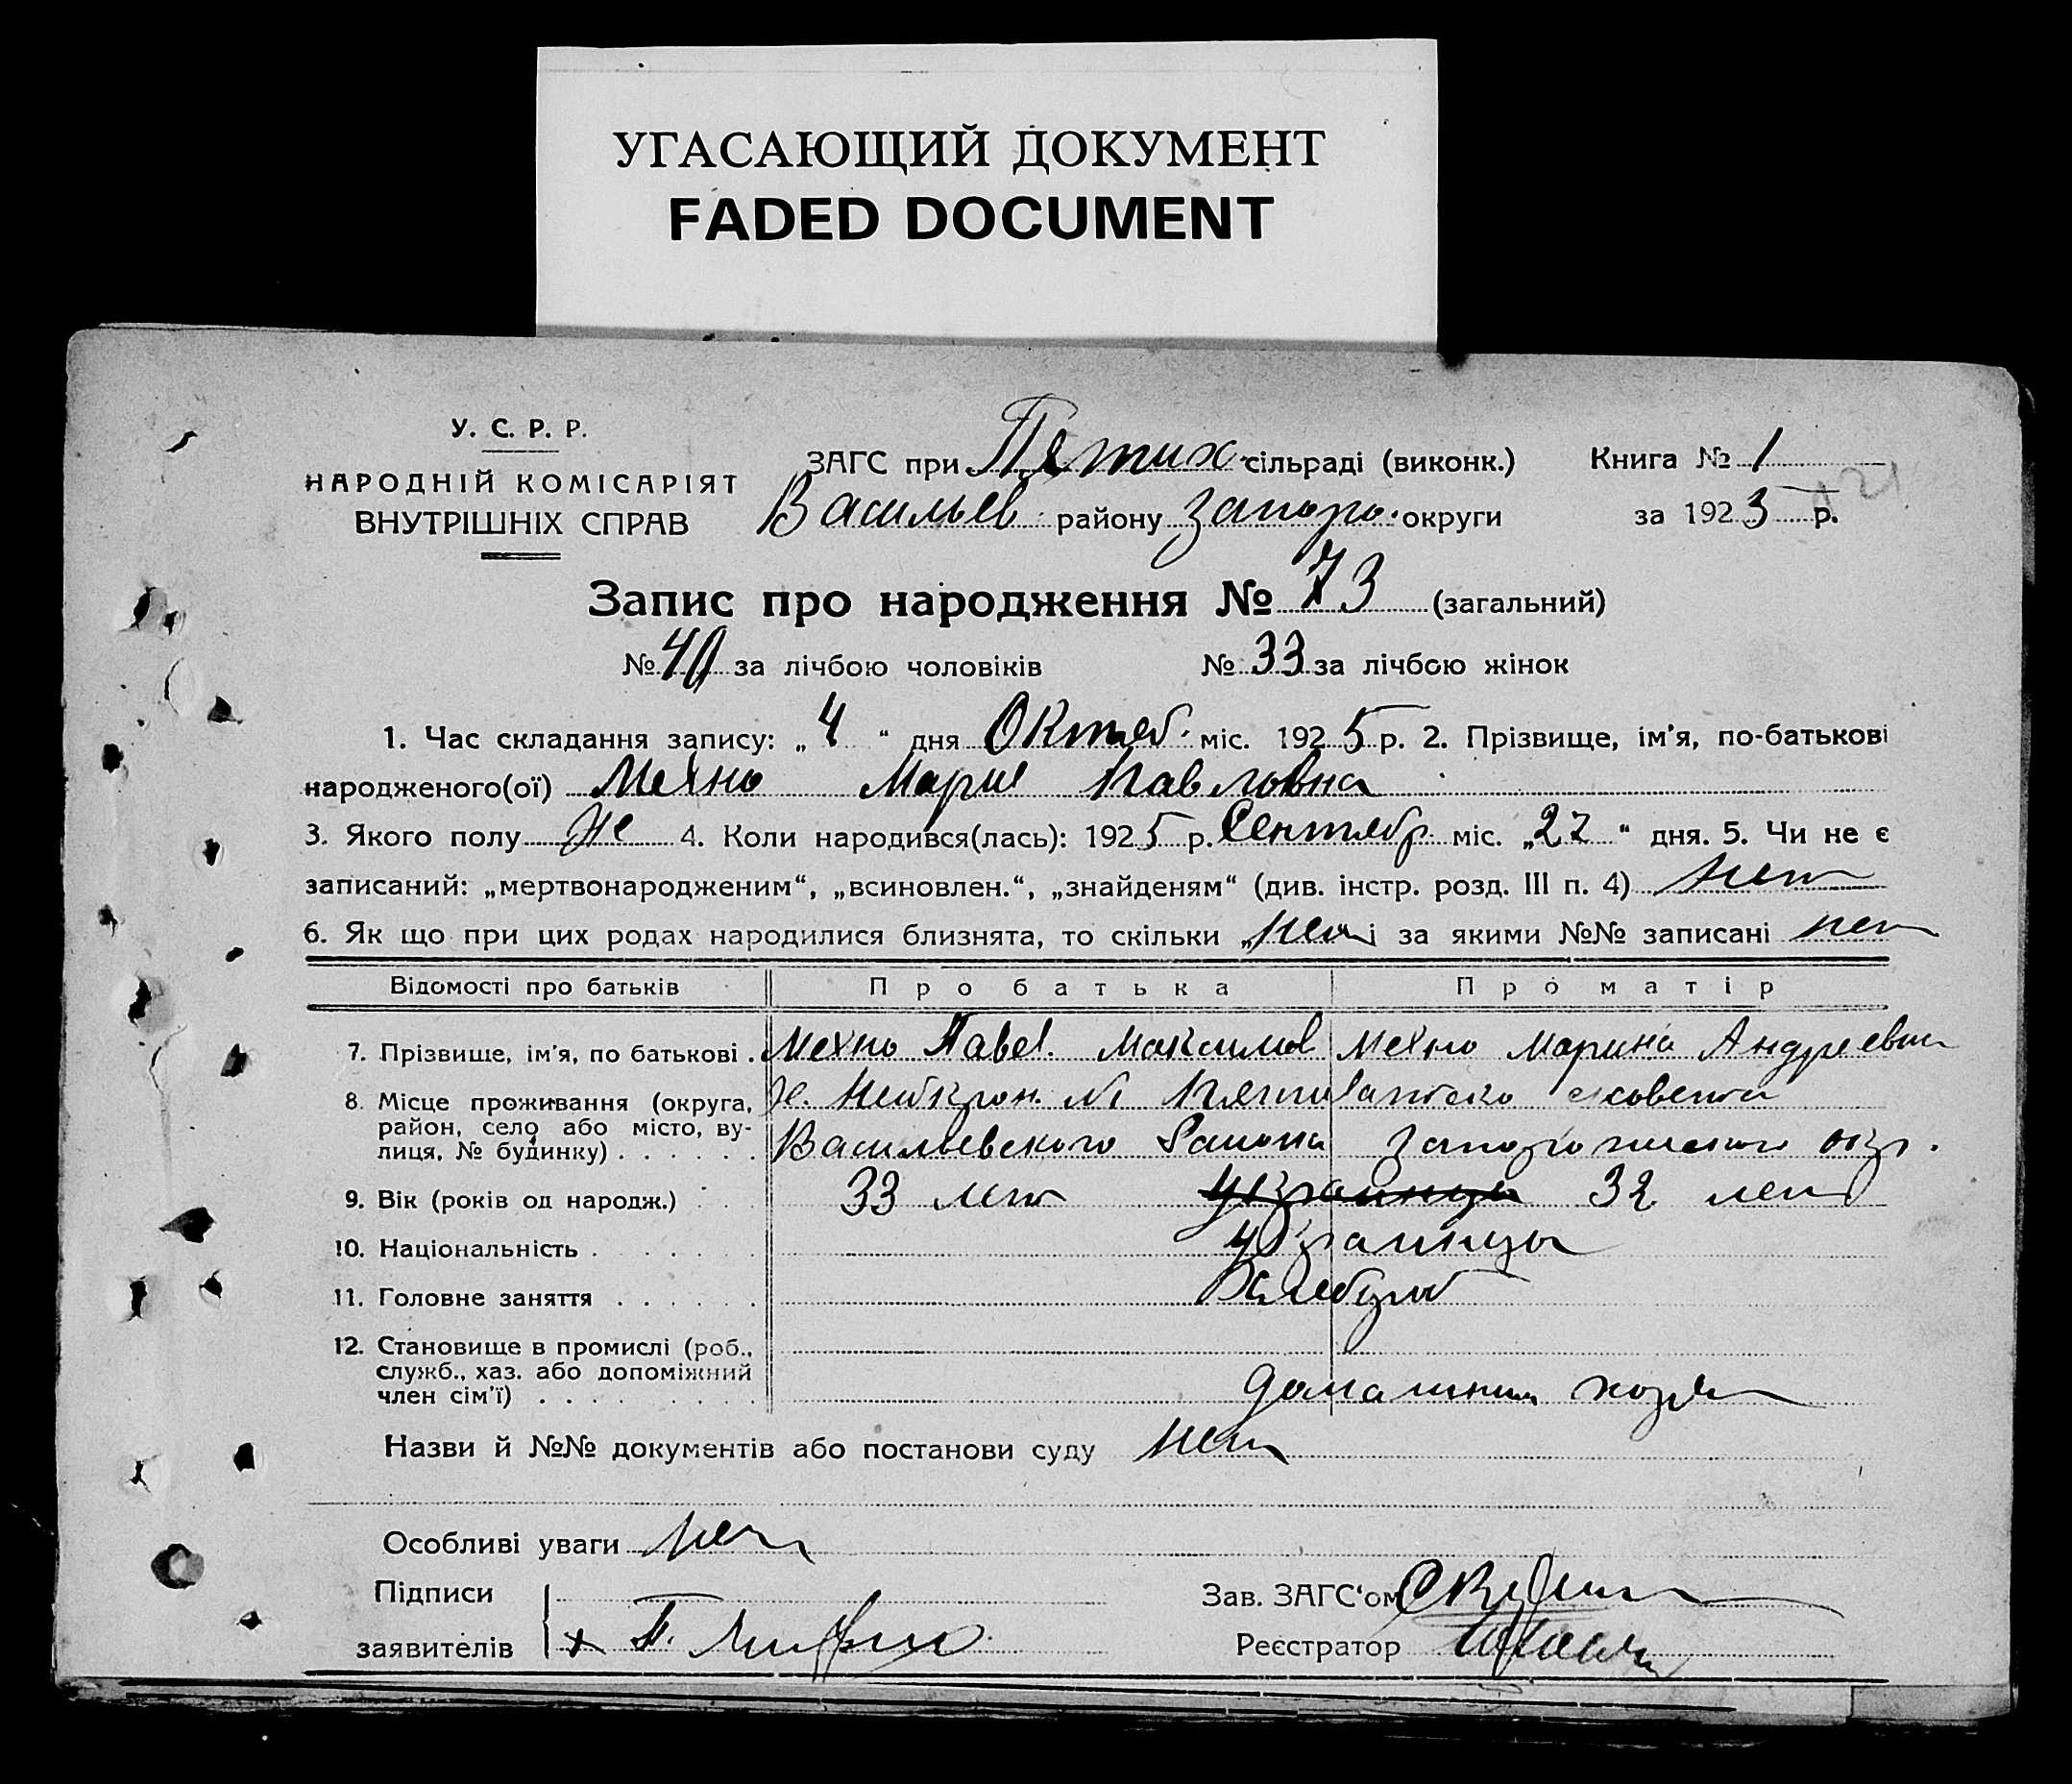 УГАСАЮЩИЙ ДОКУМЕНТ
FADED DOCUMENT
У. С. Р. Р.
НАРОДНІЙ КОМІСАРІЯТ
ВНУТРІШНІХ СПРАВ
ЗАГС при Пятих. сільраді (виконк.)
Васильев. району Запоро. округи
Книга № 1
за 1925 р.
Запис про народження № 73 (загальний)
№ 40 за лічбою чоловіків № 33 за лічбою жінок
1. Час складання запису: „4“ дня Октяб. міс. 1925 р. 2. Прізвище, ім'я, по-батькові
народженого(ої) Мехно Мария Павловна
3. Якого полу же 4. Коли народився(лась): 1925 р. Сентябр. міс. „27“ дня. 5. Чи не є
записаний: „мертвонародженим“, „всиновлен.“, „знайденям“ (див. інстр. розд. III п. 4) нет
6. Як що при цих родах народилися близнята, то скільки „нет і за якими №№ записані нет
Відомості про батьків Про батька Про матір
7. Прізвище, ім'я, по батькові . Мехно Павел. Максимов Мехно Марина Андреевна
8. Місце проживання (округа,
район, село або місто, ву-
лиця, № будинку) . . . . . .
Васильевского Района Запорожского окр.
9. Вік (років од народж.) . . . 33 лет украинцы 32 лет
10. Національність . . . . . . украинцы
11. Головне заняття . . . . . . Хлебороб
12. Становище в промислі (роб.,
служб., хаз. або допоміжний
член сім'ї) . . . . . . . . . домашняя хозяй
Назви й №№ документів або постанови суду нет
Особливі уваги нет
Підписи
заявителів + П.
Зав. ЗАГС'ом
Реєстратор